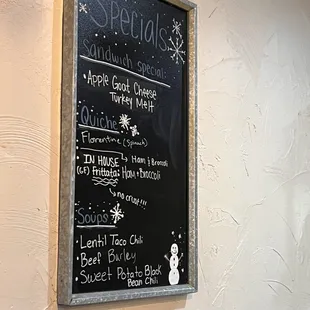 Specials
Sandwich special:
Apple Goat Cheese
Turkey Melt
Quiche
Florentine (Spinach)
• IN HOUSE → Ham & Broccoli
(GF) Frittata: Ham & Broccoli
→ no crust!!!
Soups
• Lentil Taco Chili
• Beef Barley
• Sweet Potato Black
Bean Chili